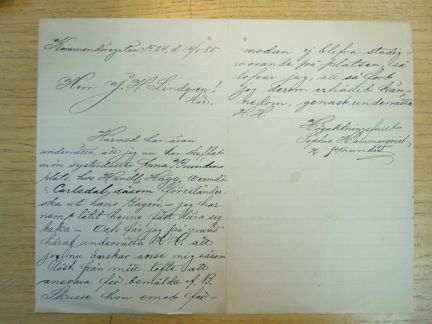 Kommendörsgatan № 24, d. 14/5 85
Herr J. H. Lindgren!
Här.
Härmed har äran
underrätta, att jag nu har skaffat
min systerdotter Anna Brunden
plats hos Handl. Hägg, Wermdö
Carlsdal, såsom föreståndar-
ska uti hans Bageri – jag har
nemligen låtit henne lära sig
baka – Och får jag på grund
häraf underrätta H. H. att
jag nu önskar anse mig såsom
löst från mitt löfte att
ansvara för bemälde A. B.
Skulle hon emot för-
modan ej blifva stadig-
varande på platsen, så
lofvar jag, att så fort
jag derom erhållit kän-
nedom, genast underrätta
H. H.
Högaktningsfullt
Sophia Hammarqvist